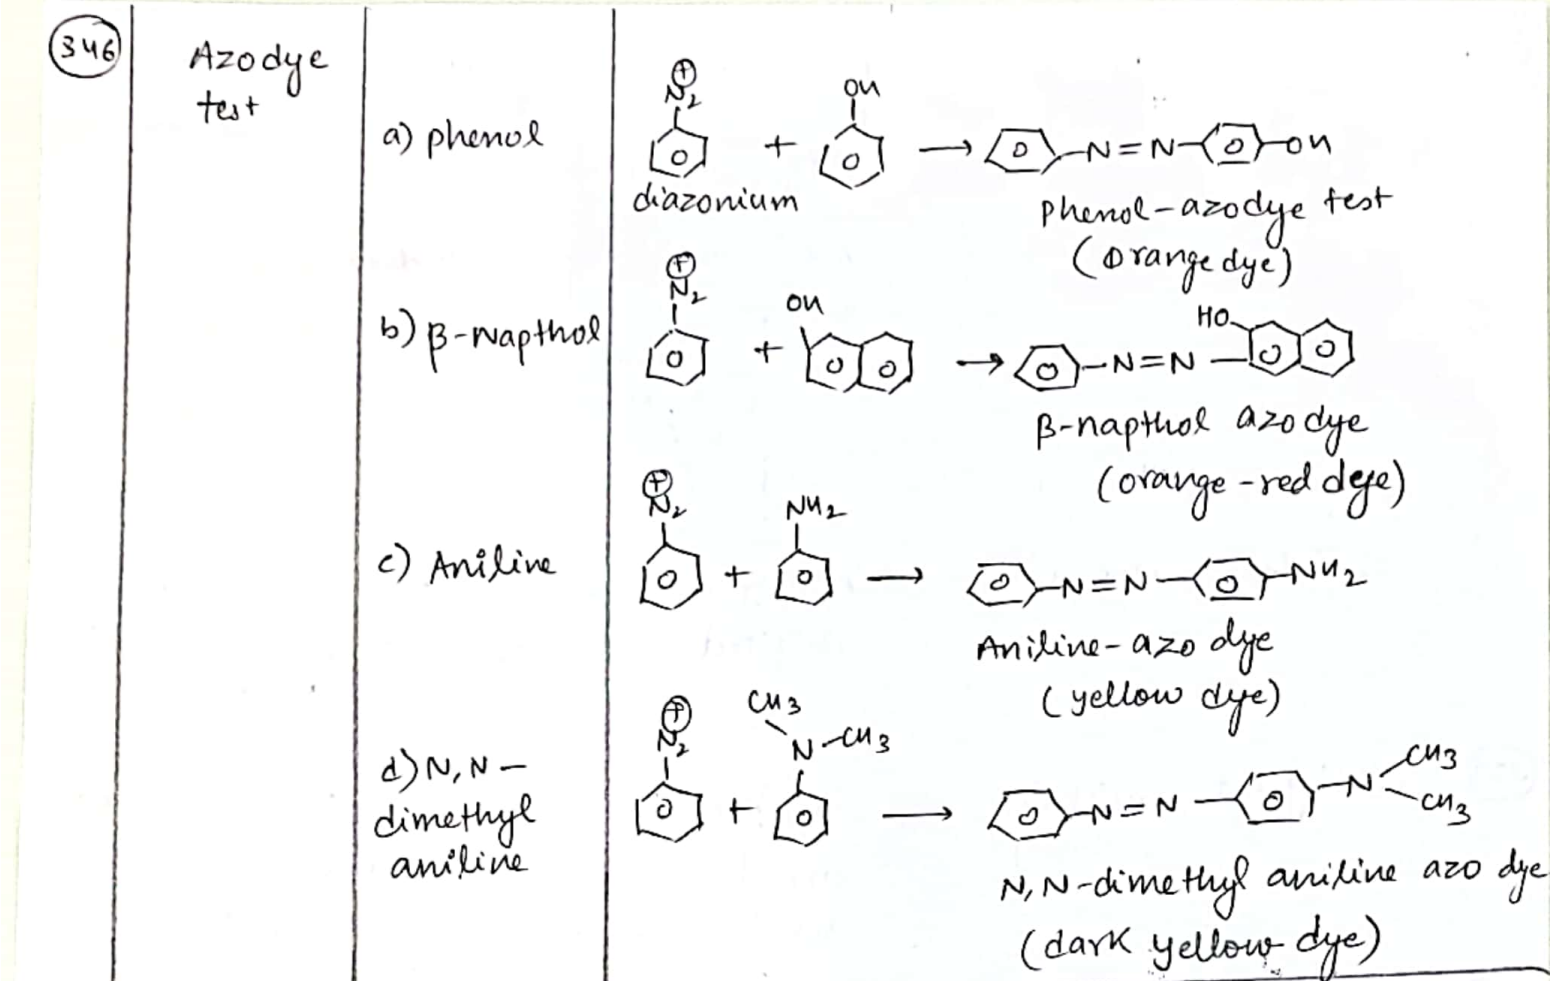 346
Azodye
test
a) phenol
N2 ⊕
OH
+
→
N=N
OH
diazonium
Phenol-azodye test
(Orange dye)
b) β-Napthol
N2 ⊕
OH
+
→
N=N
HO
β-napthol azo dye
(orange-red dye)
c) Aniline
N2 ⊕
NH2
+
→
N=N
NH2
Aniline-azo dye
(yellow dye)
d) N,N-
dimethyl
aniline
N2 ⊕
CH3
N-CH3
+
→
N=N
N
CH3
CH3
N,N-dimethyl aniline azo dye
(dark yellow dye)